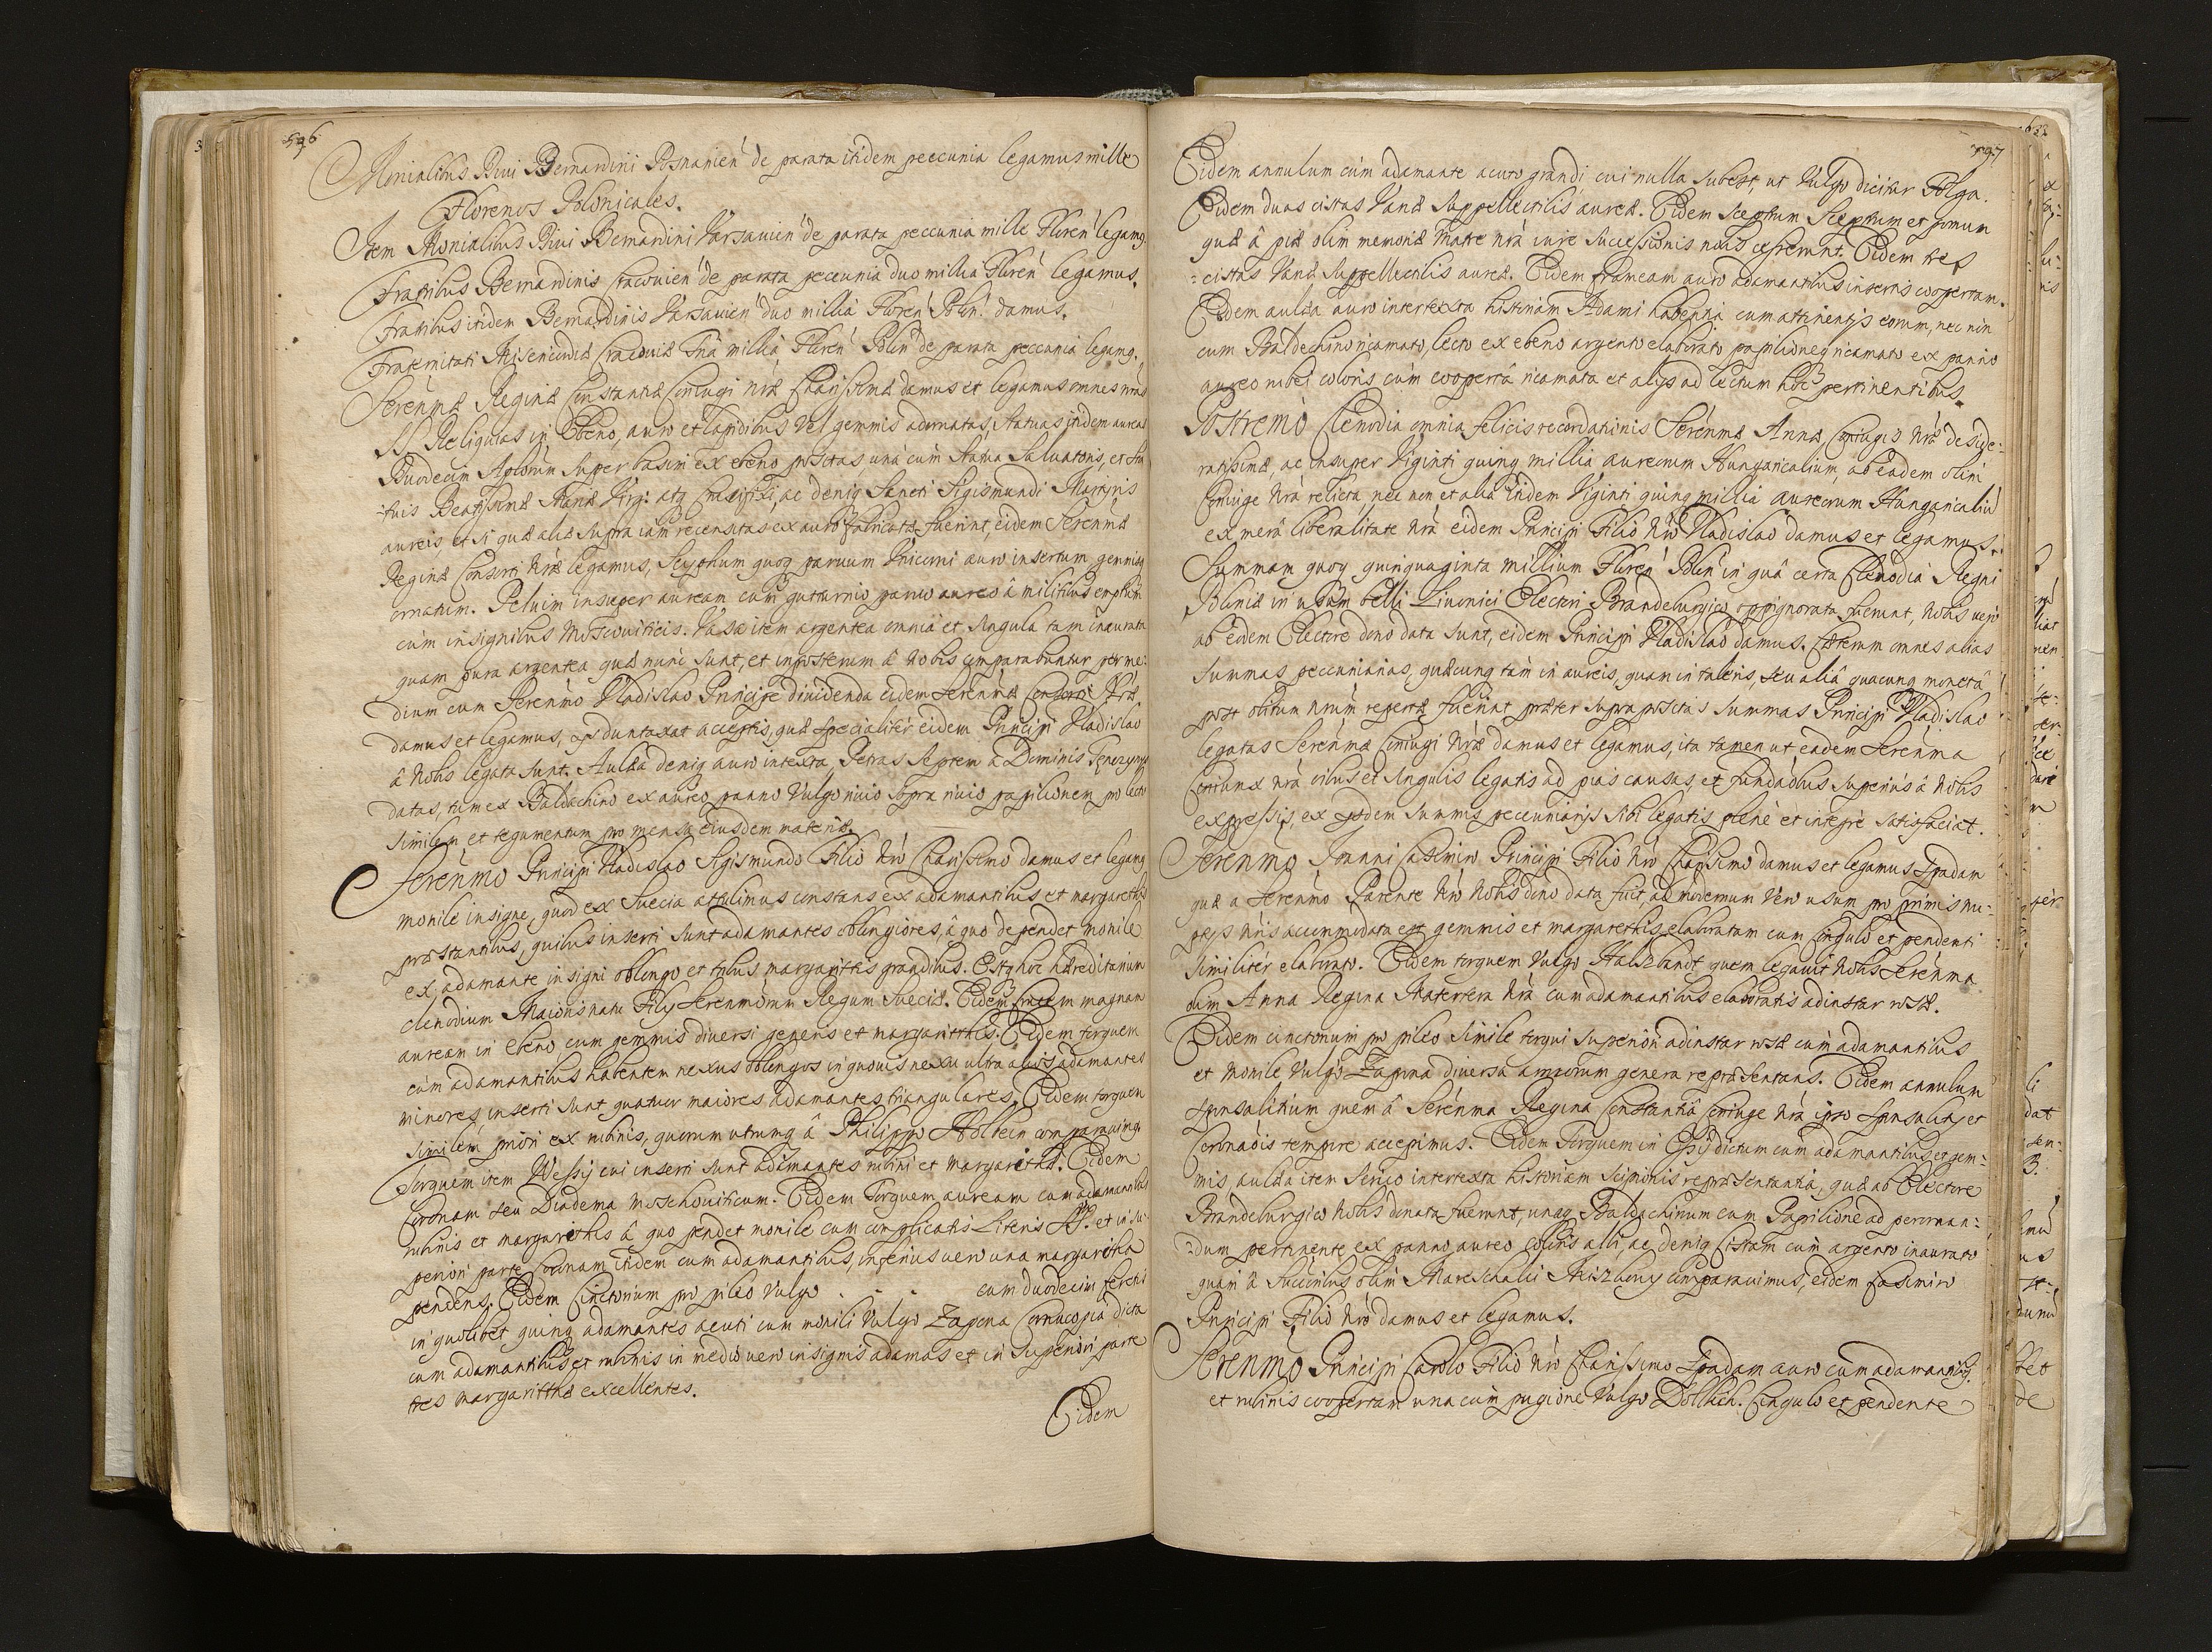 596
Monialibus Divi Bernardini Posnanien de parata itidem peccunia legamus mille
Florenos Polonicales.
Item Monialibus Divi Bernardini Varsauien de parata peccunia mille Floren legamq
Fratribus Bernardinis Cracouien de parata peccunia duo millia Floren legamus.
Fratribus itidem Bernardinis Varsauien duo millia Floren Polon: damus.
Fraternitati Misericordiæ Cracouiæ Tria millia Floren Polon de parata peccunia legamq.
Serenmæ Reginæ Constantiæ Coniugi nræ Charissimæ damus et legamus omnes nras
SS Reliquias in Ebeno, auro et lapidibus vel gemmis adornatas, Statuas itidem aureas
Duodecim Aplorum super basim ex ebeno positas, unà cum statua Saluatoris, et sta
:tuis Beatissimæ Mariæ Virg: atq Crucifixi, ac deniq Sancti Sigismundi Martyris
aureis, et si quæ aliæ supra iam recensitas ex auro fabricatæ fuerint, eidem Serenmæ
Reginæ Consorti nræ legamus, Scyphum quoq paruum Vnicorni auro insertum gemmisq
ornatum. Peluim insuper auream cum gutturnio paruo aureo â militibus emptam
cum insignibus Moscouiticis. Vasa item argentea omnia et singula tam inaurata
quam pura argentea quæ nunc sunt, et inposterum â nobis comparabuntur per me:
dium cum Serenmo Vladislao Principe diuidenda eidem Serenmæ Consorti Nræ
damus et legamus, ijs duntaxat acceptis, quæ specialitèr eidem Principi Vladislao
â Nobis legata sunt. Aulæa deniq auro intexta, Petias septem â Dominis Tenczynijs
datas, item ex Baldachino ex aureo panno vulgo riuio sopra riuio papilionem pro lecto
similem et tegumentum pro mensa eiusdem materiæ.
Serenmo Principi Vladislao Sigismundo Filio nro Charissimo damus et legamq
monile insigne, quod ex Suecia attulimus constans ex adamantibus et margarethis
præstantibus, quibus inserti sunt adamantes oblongiores, â quo dependet monile
ex adamante insigni oblongo et tribus margarittis grandibus. Estq hoc hæreditarium
clenodium Maioris natu Filij Serenmorum Regum Sueciæ. Eidem Crucem magnam
auream in ebeno cum gemmis diuersi generis et margaritthis. Eidem torquem
cum adamantibus habentem nexus oblongos in quouis nexu ultra alios adamantes
minores, inserti sunt quatuor maiores adamantes triangulares. Eidem torquem
similem priori ex rubinis, quorum utrumq â Philippo Holbein comparauimq
Torquem item Wessij cui inserti sunt adamantes rubini et margaritthæ. Eidem
Coronam seu Diadema Moschouiticum. Eidem Torquem auream cum adamantibus
rubinis et margaritthis â quo pendet monile cum complicatis Literis et in su:
periori parte Coronam itidem cum adamantibus, inferius uero una margaritha
pendens. Eidem Cinctorium pro pileo vulgo . - - cum duodecim
in quolibet quinq adamantes acuti cum monili vulgo Zapona Cornucopia dicta
cum adamantibus et rubinis in medio uero insignis adamas et in superiori parte
tres margaritthæ excellentes.
Eidem
597
Eidem annulum cùm adamante acuto grandi cui nulla subest, ut vulgo dicitur Folga.
Eidem duas cistas Variæ Suppellectilis aureæ. Eidem Sceptrum Sceptrum et pomum
quæ â piæ olim memoriæ Matre nrà iure successionis nobis cesserunt. Eidem tres
:cistas Variæ Suppellectilis aureæ. Eidem frameam auro adamantibus insertis coopertam.
Eidem aulæa auro intertexta historiam Adami habentia cum attinentijs eorum, nec non
cum Baldechino ricamato, lecto ex ebeno argento elaborato papilioneq ricamato ex panno
aureo rubei coloris cùm coopertâ ricamata et alijs ad lectum hoc pertinentibus.
Postremò Clenodia omnia felicis recordationis Serenmæ Annæ Coniugis nræ deside:
ratissimæ, ac insuper Viginti quinq millia aureorum Hungaricalium, ab eadem olim
Coniuge Nrà relicta, nec non et alia itidem Viginti quinq millia aureorum Hungaricaliu
ex merâ liberalitate Nrà eidem Principi Filio Nro Vladislao damus et legamus.
Summam quoq quinquaginta millium Floren Polon in quâ certa Clenodia Regni
Poloniæ in usum belli Liuonici Electori Brandeburgico oppignorata fuerunt, Nobis uerò
ab eodem Electore dono data sunt, eidem Principi Vladislao damus. Cæterum omnes alias
summas peccuniarias, quæcunq tàm in aureis, quam in taleris, seu aliâ quacunq monetâ
post obitum nrum repertæ fuerint præter supra positas summas Principi Vladislao
legatas Serenmæ Coniugi Nræ damus et legamus, ita tamen ut eadem Serenma
Coniunx nrà oibus et singulis legatis ad pias causas, et fundaobus superius â Nobis
expressis, ex ijsdem summis peccuniarijs sibi legatis plenè et integrè satisfaciat.
Serenmo Joanni Casimiro Principi Filio Nro Charissimo damus et legamus Spadam
quæ a Serenmo Parente Nro Nobis dono data fuit, ad modernum Vero usum pro primis nu:
ptijs Nris accommodata est gemmis et margarethis elaboratam cum cingulo et pendenti
similitèr elaborato. Eidem torquem vulgo Halszbandt quem legauit Nobis Serenma
olim Anna Regina Matertera Nrà cum adamantibus elaboratis adinstar rosæ.
Eidem cinctorium pro pileo simile torqui superiori adinstar rosæ cùm adamantibus
et monile vulgo Zapona diuersa armorum genera repræsentans. Eidem annulum
sponsalitium quem â Serenma Regina Constantiâ Coniuge Nrà ipso sponsalitij et
Coronaois tempore accepimus. Eidem Torquem in Gssy dictum cùm adamantibus et gem:
mis, aulæa item serico intertexta historiam Scipionis repræsentantia, quæ ab Electore
Brandeburgico Nobis donata fuerunt, unaq Baldachinum cum Papilione ad perornan:
:dum pertinente ex panno aureo coloris albi, ac deniq Cistam cùm argento inaurato
quam â Successoribus olim Mareschalci Miszkowij comparauimus, eidem Casimiro
Principi Filio Nro damus et legamus.
Serenmo Principi Carolo Filio Nro Charissimo Spadam auro cum adamantibq.
et rubinis coopertam una cùm pugione vulgo Dollich. Cingulo et pendente